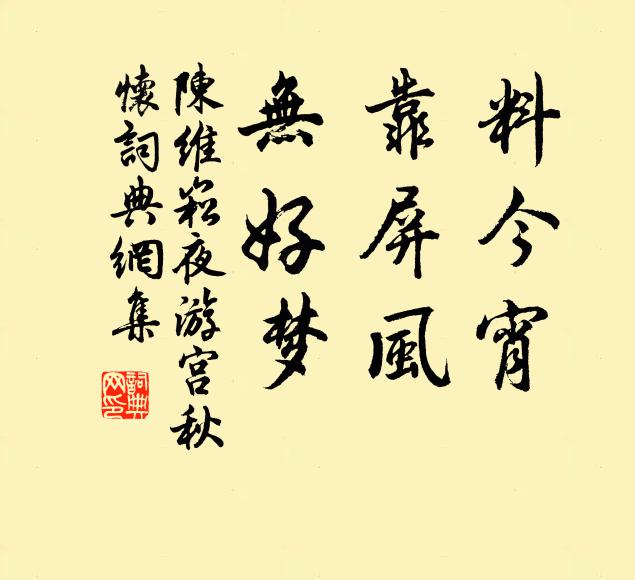 料今宵
靠屏風
無好梦
陳維崧夜游宫秋
懷詞典網集
詞典
网印